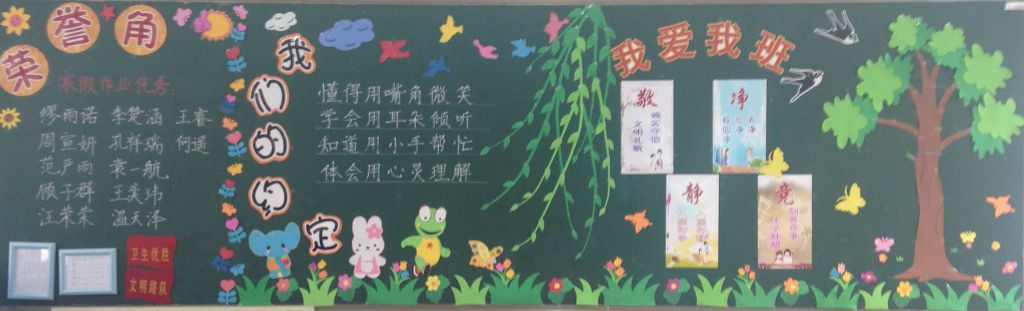 荣誉角
寒假作业优秀:
缪雨诺 李楚涵 王睿
周宣妍 孔祥瑞 何遥
范芦雨 袁一航
顾子群 王奕玮
汪荣荣 温天泽
卫生优胜
文明路队
我们的约定
懂得用嘴角微笑
学会用耳朵倾听
知道用小手帮忙
体会用心灵理解
我爱我班
敬
诚实守信
文明礼貌
净
衣净
心净
校园净
静
竞
创善竞争